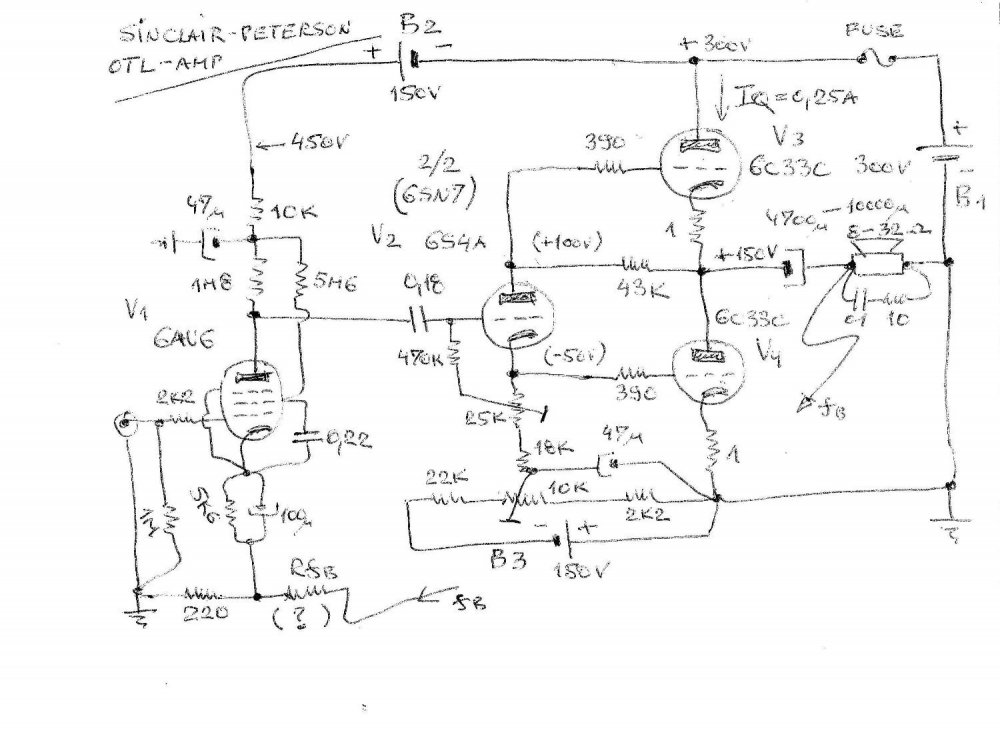 SINCLAIR-PETERSON
OTL-AMP
B2
+ -
150V
+300V
FUSE
IQ=0,25A
← 450V
390
V3
6C33C
300V
+
-
B1
2/2
(6SN7)
47µ
10K
V2
6S4A
1
4700µ - 10000µ
8-32Ω
(+100V)
+150V
1M8
5M6
0,18
43K
0,1
10
V1
6AU6
6C33C
V4
(-50V)
470K
390
fB
2K2
25K
0,22
18K
47µ
1
5K6
100µ
22K
10K
2K2
- +
B3
150V
RfB
220
(?)
← fB